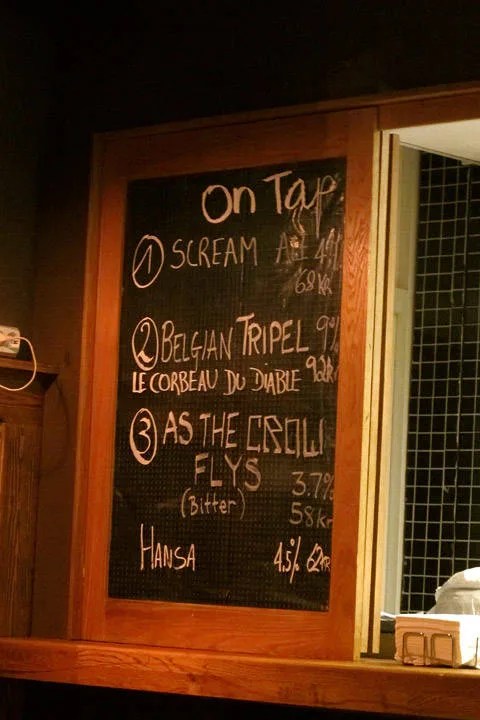 On Tap
1 SCREAM ALE 4%
68 KR
2 BELGIAN TRIPEL 9%
LE CORBEAU DU DIABLE 92kr
3 AS THE CROW
FLYS
3.7%
(Bitter)
58kr
HANSA 4.5% 62KR